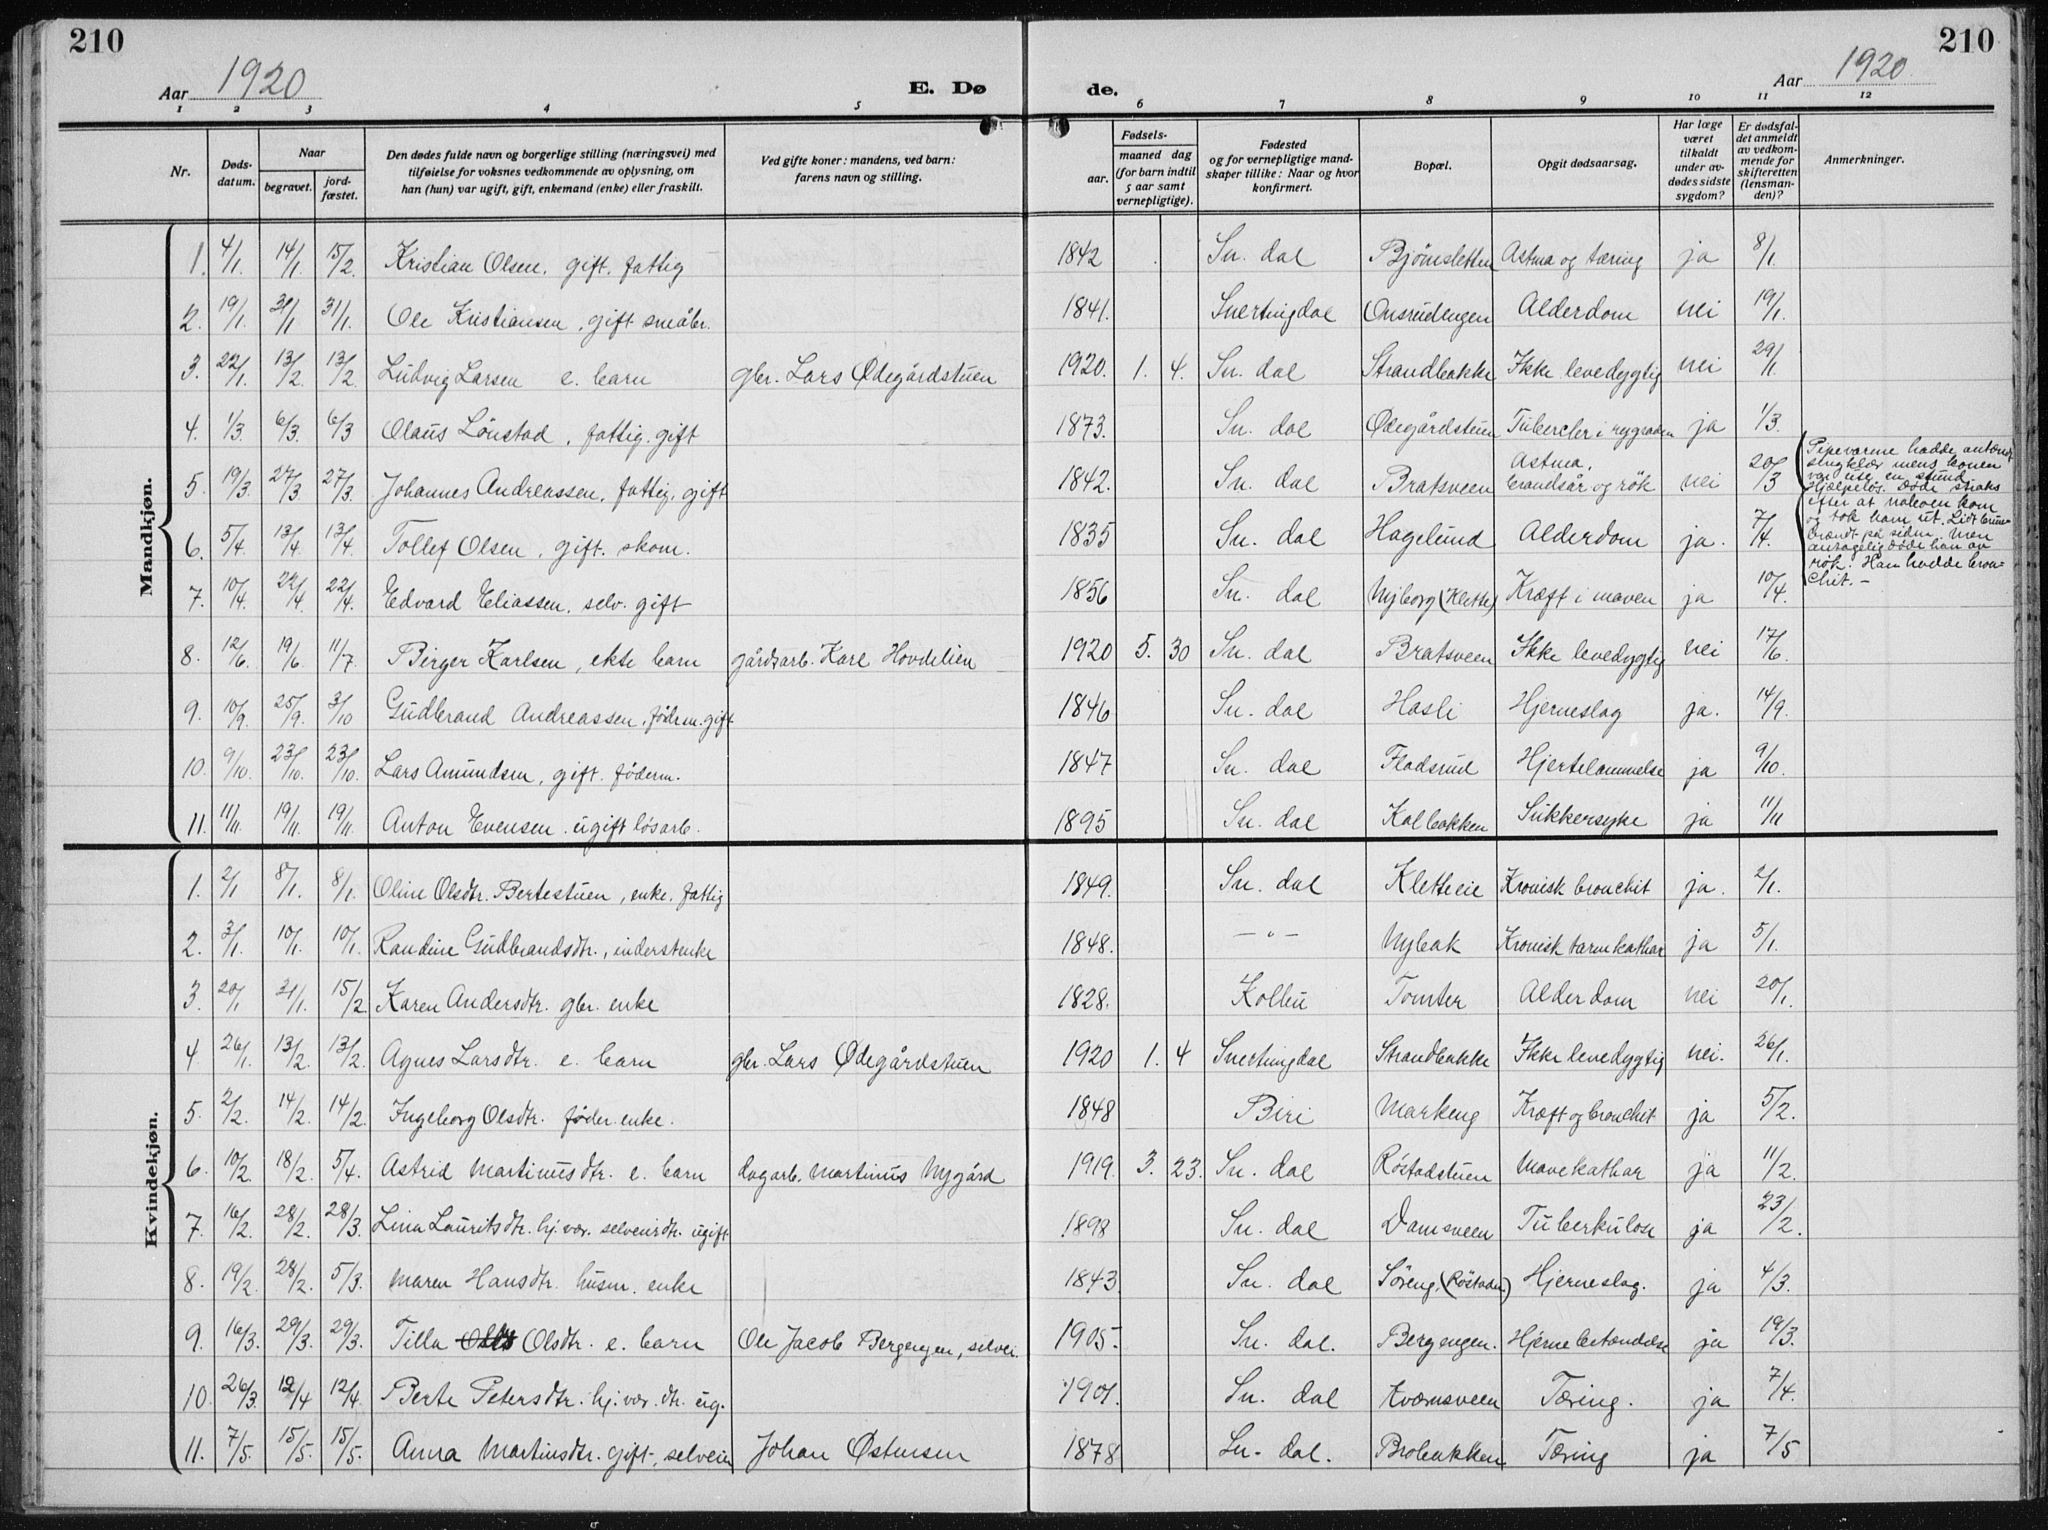 210
210
Aar 1920
E. Dø
de.
Aar 1920
1 2 3 4 5 6 7 8 9 10 11 12
Nr.
Døds-
datum.
Naar
begravet.
jord-
fæstet.
Den dødes fulde navn og borgerlige stilling (næringsvei) med
tilføielse for voksnes vedkommende av oplysning, om
han (hun) var ugift, gift, enkemand (enke) eller fraskilt.
Ved gifte koner: mandens, ved barn:
farens navn og stilling.
Fødsels-
aar.
maaned dag
(for barn indtil
5 aar samt
vernepligtige).
Fødested
og for vernepligtige mand-
skaper tillike: Naar og hvor
konfirmert.
Bopæl.
Opgit dødsaarsag.
Har læge
været
tilkaldt
under av-
dødes sidste
sygdom?
Er dødsfal-
det anmeldt
av vedkom-
mende for
skifteretten
(lensman-
den)?
Anmerkninger.
Mandkjøn.
1. 4/1. 14/1. 15/2. Kristian Olsen. gift. fattig 1842 Sn. dal Bjørnsletten Astma og tæring ja 8/1.
2. 19/1. 31/1 31/1. Ole Kristiansen, gift småbr. 1841. Snertingdal Onsrudengen Alderdom nei 19/1.
3. 22/1. 13/2. 13/2. Ludvig Larsen e. barn gbr. Lars Ødegårdstuen 1920. 1. 4. Sn. dal Strandbakke Ikke levedygtig nei 29/1.
4. 1/3. 6/3. 6/3 Olaus Lönstad, fattig. gift 1873. Sn. dal Ødegårdstuen Tubercler i rygraden ja 1/3.
5. 19/3. 27/3. 27/3. Johannes Andreassen, fattig, gift 1842. Sn. dal Bratsveen Astma, brandsår og rök nei 20/3
Pipevarme hadde antændt
sengklær mens konen
var ute en stund.
Hjælpeløs. Døde straks
efter at naboen kom
og tok ham ut. Lidt
brændt på siden, men
antagelig døde han av
rök. Han hadde bron-
chit. –
6. 5/4. 13/4. 13/4. Tollef Olsen, gift. skom. 1835 Sn. dal Hagelund Alderdom ja. 7/4.
7. 10/4. 22/4. 22/4. Edvard Eliassen. selv. gift 1856 Sn. dal Nyborg (Klette) Kræft i maven ja 10/4.
8. 12/6. 19/6. 11/7. Birger Karlsen, ekte barn gårdsarb. Karl Hovdelien 1920 5. 30 Sn. dal Bratsveen Ikke levedygtig nei 17/6.
9. 10/9. 25/9. 3/10 Gudbrand Andreassen, föderm. gift 1846 Sn. dal Hasli Hjerneslag ja. 14/9.
10. 9/10. 23/10. 23/10. Lars Amundsen, gift. föderm. 1847 Sn. dal Fladsrud Hjertelammelse ja 9/10.
11. 11/11. 19/11. 19/11. Anton Evensen. ugift løsarb. 1895 Sn. dal Kolbakken Sukkersyke ja 11/11
Kvindekjøn.
1. 2/1 8/1. 8/1. Oline Olsdtr. Bertestuen, enke. fattig 1849. Sn. dal Kletteeie Kronisk bronchit ja. 2/1.
2. 3/1. 10/1. 10/1. Randine Gudbrandsdtr., inderstenke 1848. – " – Nybak Kronisk tarmkathar ja 5/1.
3. 20/1 31/1. 15/2. Karen Andersdtr. gbr. enke 1828. Kolbu Tomter Alderdom nei 20/1.
4 26/1. 13/2. 13/2. Agnes Larsdtr. e. barn gbr. Lars Ødegårdstuen 1920 1. 4 Snertingdal Strandbakke Ikke levedygtig nei. 26/1.
5. 2/2. 14/2. 14/2. Ingeborg Olsdtr. føder. enke. 1848 Biri Markeng Kræft og bronchit ja 5/2.
6. 10/2. 18/2. 5/4. Astrid Martinusdtr. e. barn dagarb. Martinus Nygård 1919. 3. 23. Sn. dal Røstadstuen Mavekathar ja 11/2.
7. 16/2. 28/2. 28/3. Lina Lauritsdtr. hj. vær. selveierdtr. ugift. 1898 Sn. dal Damsveen Tuberkulose ja 23/2.
8. 19/2. 28/2. 5/3. Maren Hansdtr. husm. enke 1843 Sn. dal Söreng. (Röstaden) Hjerneslag. ja 4/3.
9. 16/3. 29/3. 29/3. Tilla Olsdtr. e. barn Ole Jacob Bergengen, selvei. 1905. Sn. dal. Bergengen. Hjernebetændelse ja 19/3.
10. 26/3. 12/4 12/4. Berte Petersdtr. hj. vær. dtr. ug. 1901. Sn. dal Kværnsveen Tæring. ja 7/4.
11. 7/5. 15/5. 15/5. Anna Martinsdtr. gift, selveier Johan Østensen 1878 Sn. dal. Brobakken Tæring ja 7/5